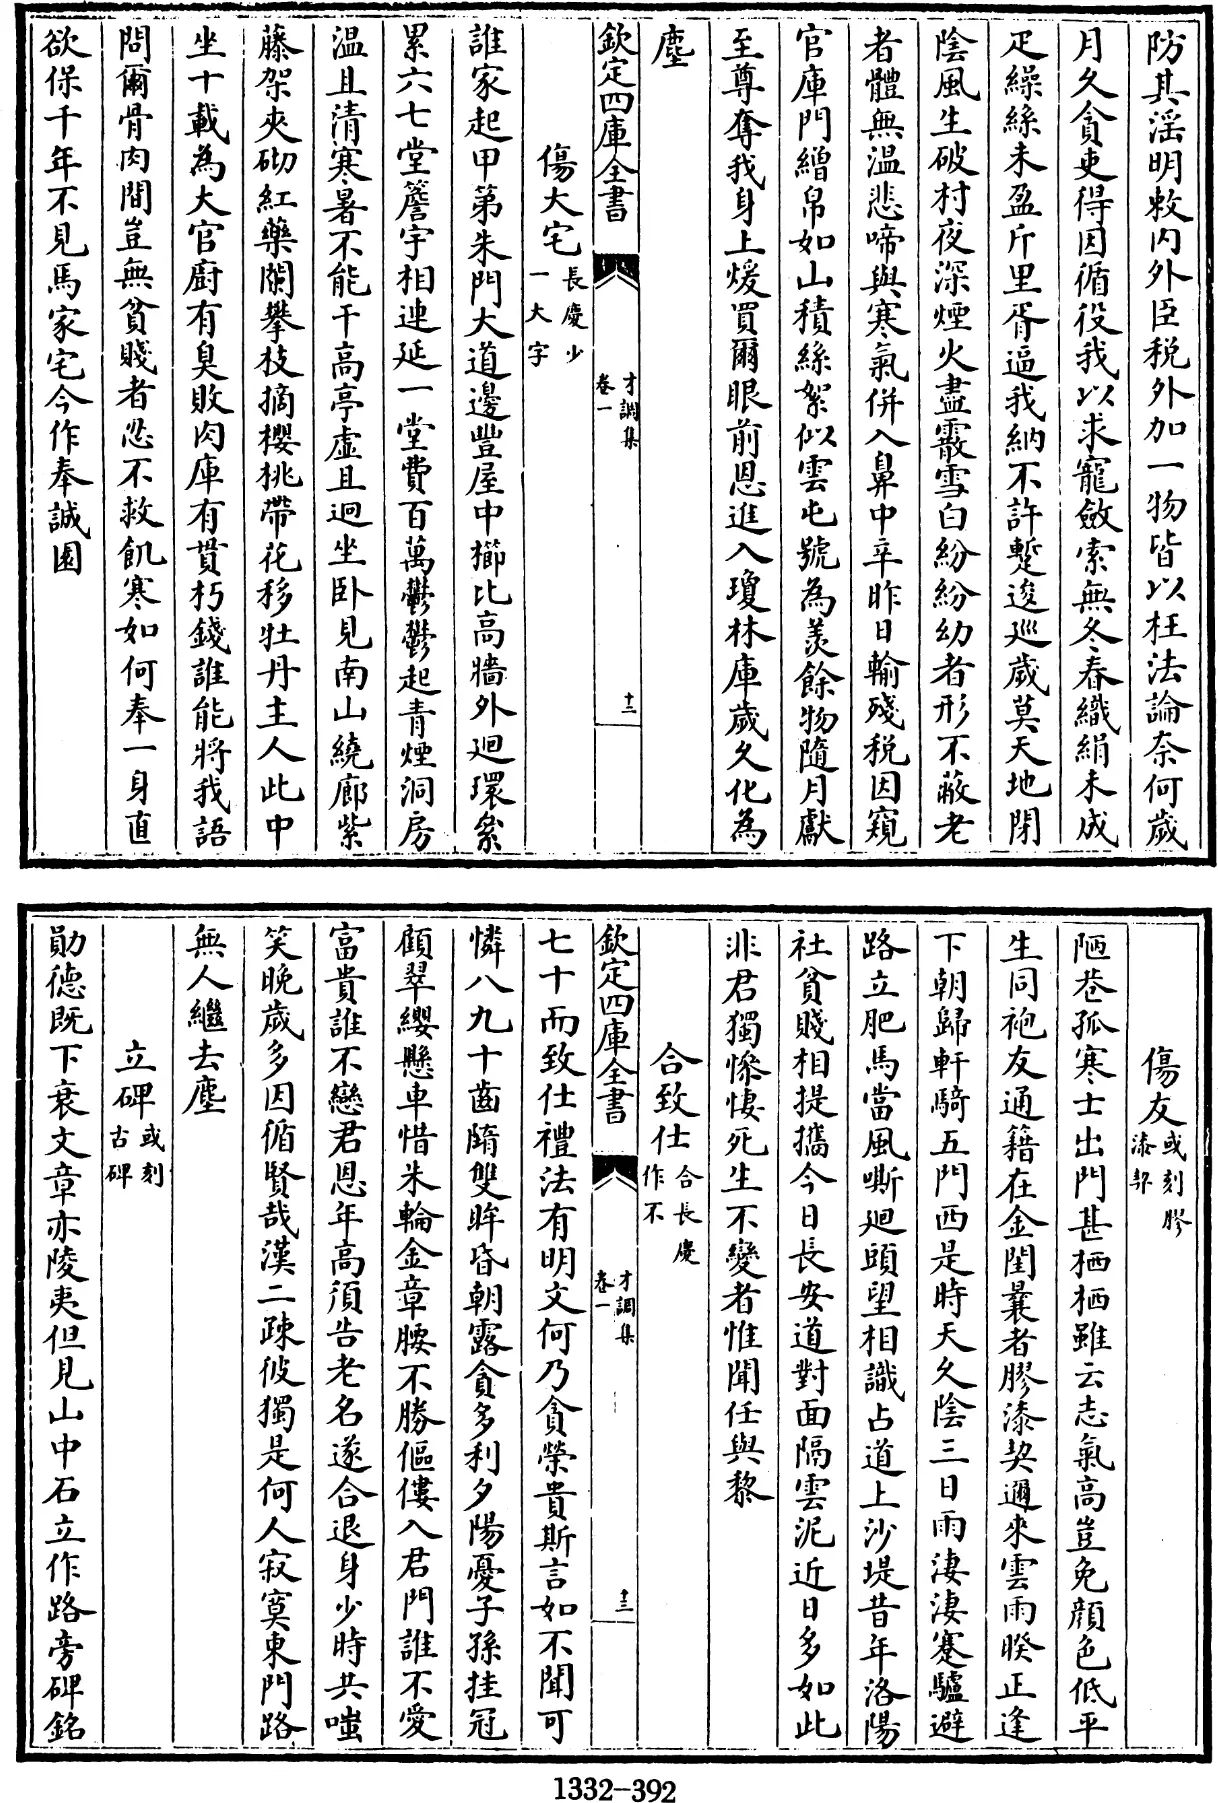 防其淫明敕内外臣税外加一物皆以枉法論奈何歲
月久貪吏得因循役我以求寵斂索無冬春織絹未成
疋繰絲未盈斤里胥逼我納不許蹔逡巡歲莫天地閉
陰風生破村夜深煙火盡霰雪白紛紛幼者形不蔽老
者體無温悲啼與寒氣併入鼻中辛昨日輸殘税因窺
官庫門繒帛如山積絲絮似雲屯號為羡餘物隨月獻
至尊奪我身上煖買爾眼前恩進入瓊林庫歲久化為
塵
欽定四庫全書
才調集
卷一
十二
傷大宅
長慶少
一大字
誰家起甲第朱門大道邊豐屋中櫛比高牆外廻環纍
累六七堂簷宇相連延一堂費百萬鬱鬱起青煙洞房
温且清寒暑不能干高亭虚且迥坐卧見南山繞廊紫
藤架夾砌紅藥闌攀枝摘櫻桃帶花移牡丹主人此中
坐十載為大官廚有臭敗肉庫有貫朽錢誰能將我語
問爾骨肉間豈無貧賤者忍不救飢寒如何奉一身直
欲保千年不見馬家宅今作奉誠園
傷友
或刻膠
漆契
陋巷孤寒士出門甚栖栖雖云志氣高豈免顔色低平
生同袍友通籍在金閨曩者膠漆契邇來雲雨暌正逢
下朝歸軒騎五門西是時天久陰三日雨淒淒蹇驢避
路立肥馬當風嘶廻頭望相識占道上沙堤昔年洛陽
社貧賤相提攜今日長安道對面隔雲泥近日多如此
非君獨慘悽死生不變者惟聞任與黎
合致仕
合長慶
作不
欽定四庫全書
才調集
卷一
十三
七十而致仕禮法有明文何乃貪榮貴斯言如不聞可
憐八九十齒隋雙眸昏朝露貪多利夕陽憂子孫挂冠
顧翠緌懸車惜朱輪金章腰不勝傴僂入君門誰不愛
富貴誰不戀君恩年高須告老名遂合退身少時共嗤
笑晚歲多因循賢哉漢二疎彼獨是何人寂寞東門路
無人繼去塵
立碑
或刻
古碑
勛德既下衰文章亦陵夷但見山中石立作路旁碑銘
1332-392